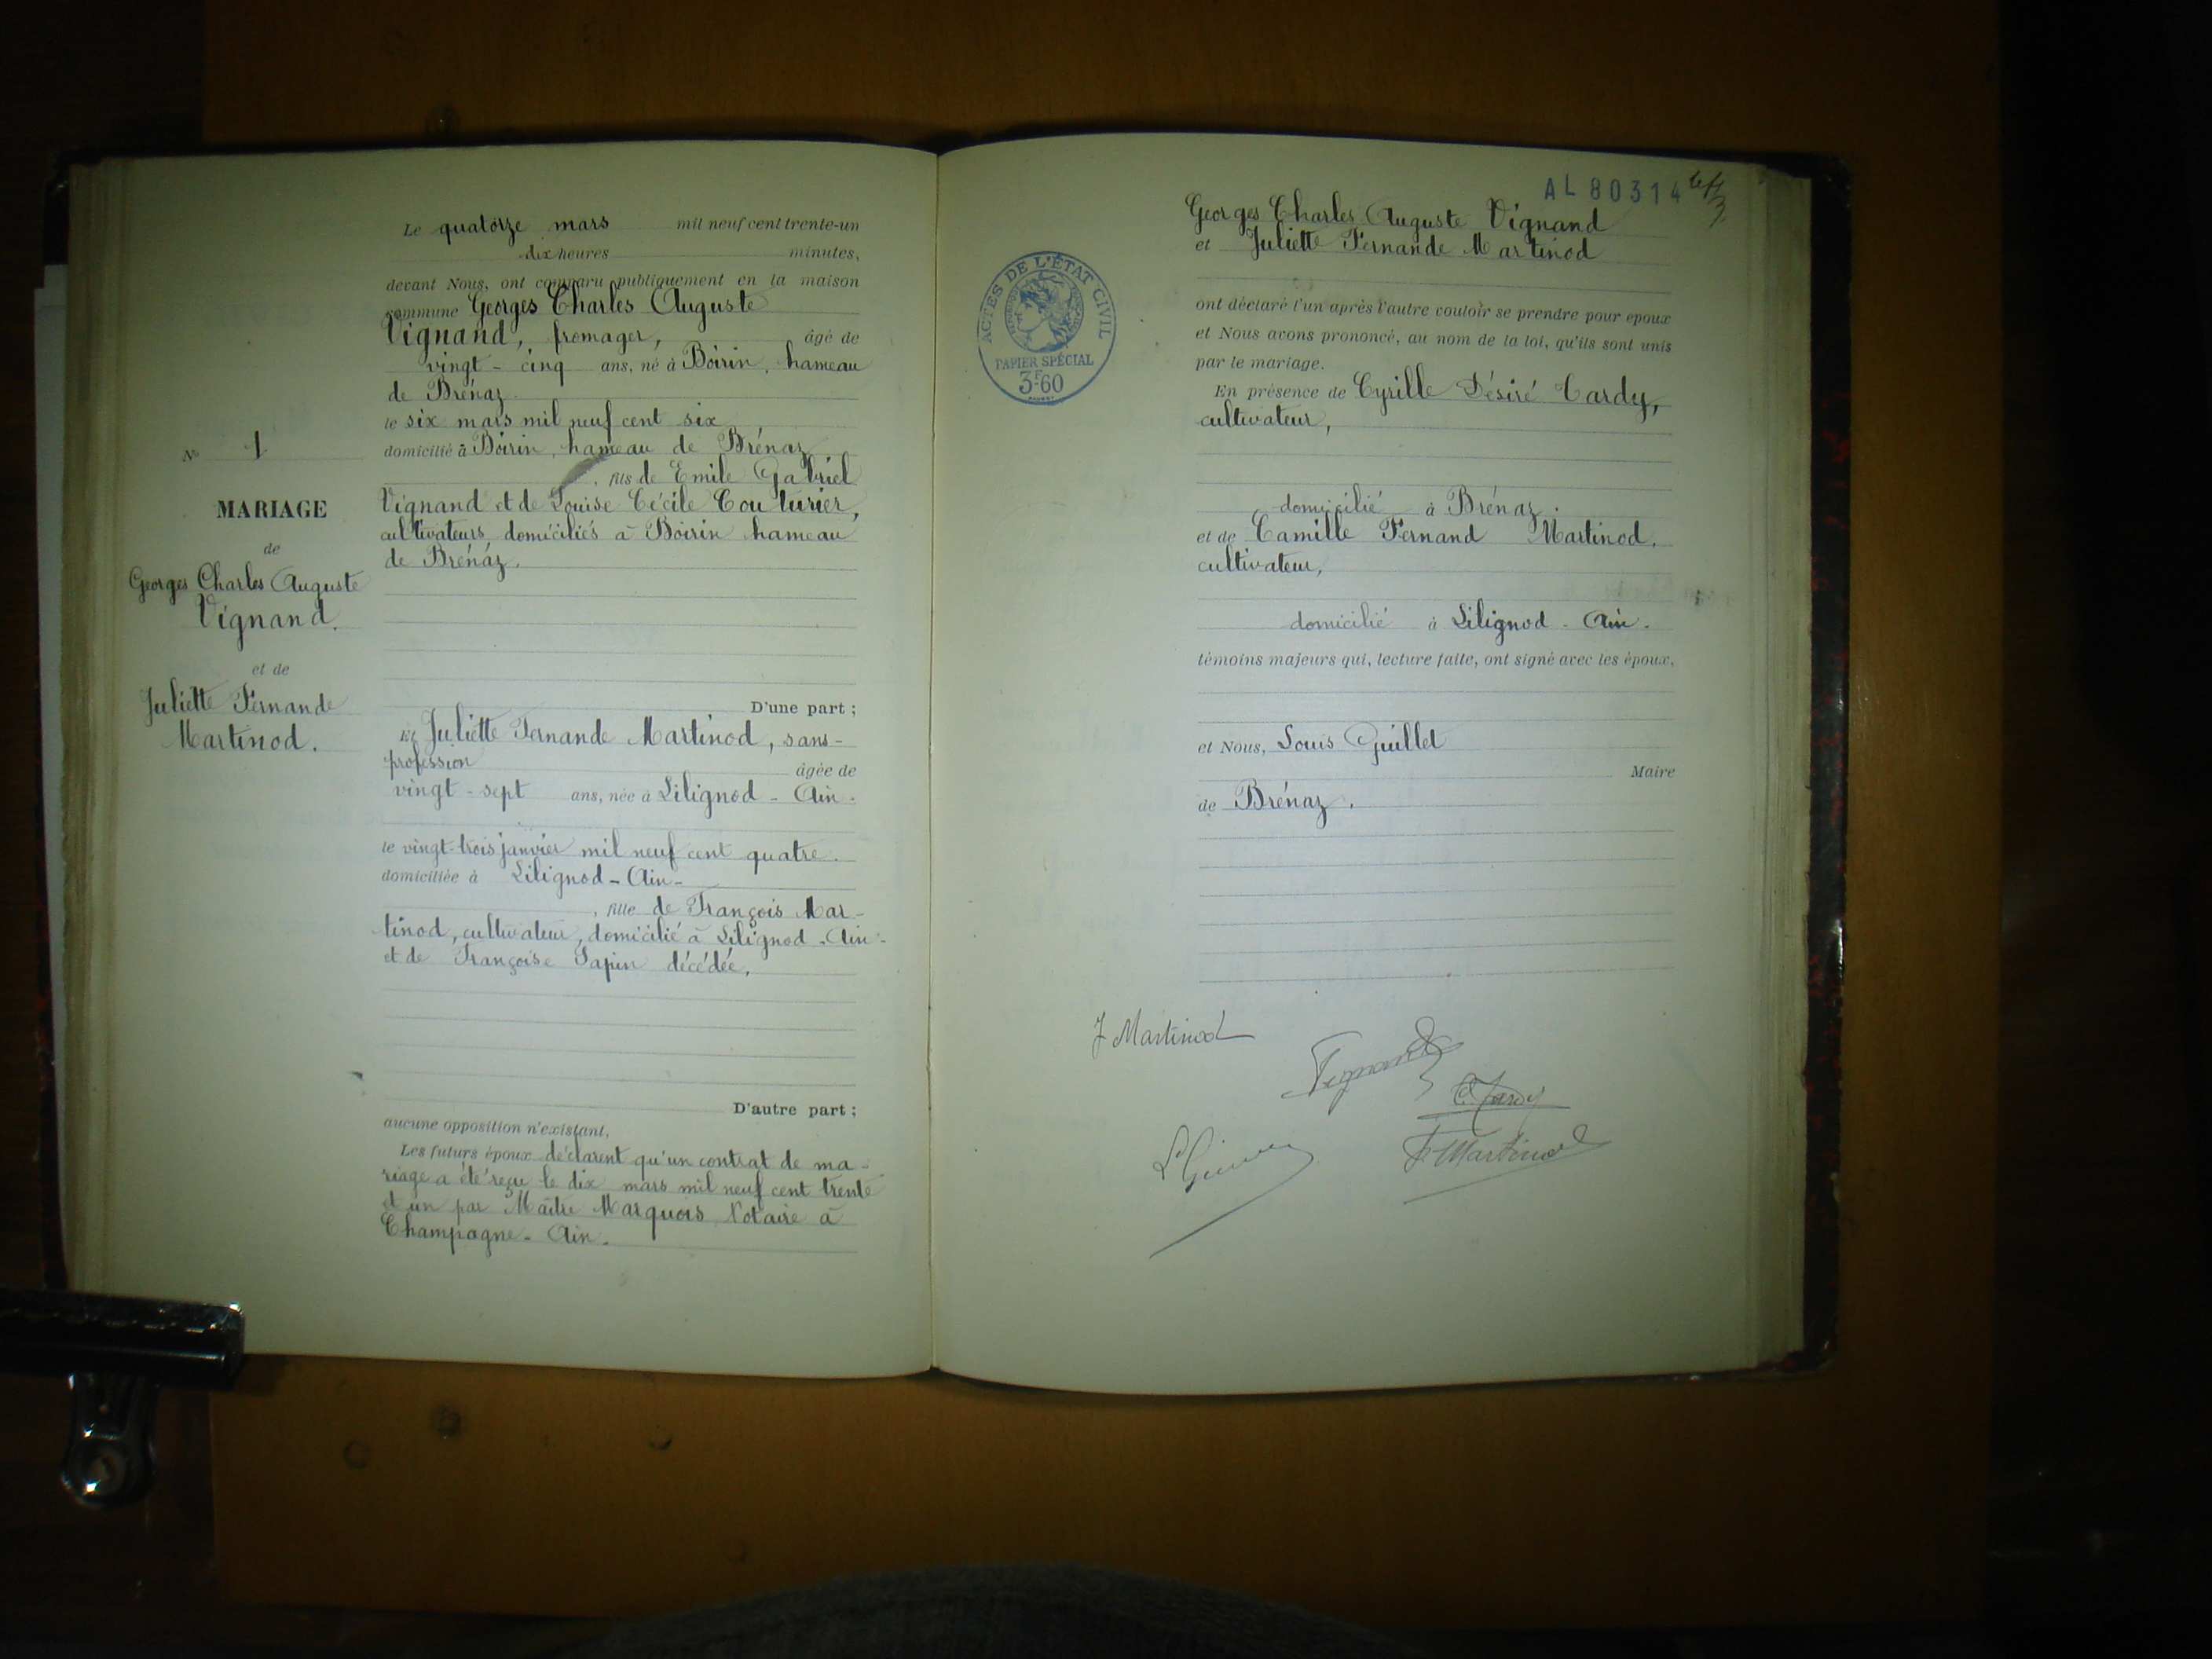 Le quatorze mars mil neuf cent trente-un
dix heures minutes,
devant Nous, ont comparu publiquement en la maison
commune Georges Charles Auguste
Vignand, fromager, âgé de
vingt - cinq ans, né à Boirin, hameau
de Brénaz
le six mars mil neuf cent six
domicilié à Boirin, hameau de Brénaz
, fils de Emile Gabriel
Vignand et de Louise Cécile Couturier,
cultivateurs domiciliés à Boirin hameau
de Brénaz.
D'une part ;
Et Juliette Fernande Martinod, sans-
profession âgée de
vingt - sept ans, née à Lilignod - Ain -
le vingt-trois janvier mil neuf cent quatre.
domiciliée à Lilignod - Ain -
, fille de François Mar-
tinod, cultivateur, domicilié à Lilignod - Ain -
et de Françoise Sapin décédée,
D'autre part ;
aucune opposition n'existant,
Les futurs époux déclarent qu'un contrat de ma-
riage a été reçu le dix mars mil neuf cent trente
et un par Maître Marquois Notaire à
Champagne - Ain -
N° 1
MARIAGE
de
Georges Charles Auguste
Vignand.
et de
Juliette Fernande
Martinod.
AL 80314
ACTES DE L'ÉTAT CIVIL
PAPIER SPÉCIAL
3F60
Georges Charles Auguste Vignand
et Juliette Fernande Martinod
ont déclaré l'un après l'autre vouloir se prendre pour époux
et Nous avons prononcé, au nom de la loi, qu'ils sont unis
par le mariage.
En présence de Cyrille Désiré Tardy,
cultivateur,
domicilié à Brénaz.
et de Camille Fernand Martinod,
cultivateur,
domicilié à Lilignod - Ain -
témoins majeurs qui, lecture faite, ont signé avec les époux,
et Nous, Louis Guillet
Maire
de Brénaz.
J Martinod
Vignand
C. Tardy
F. Martinod